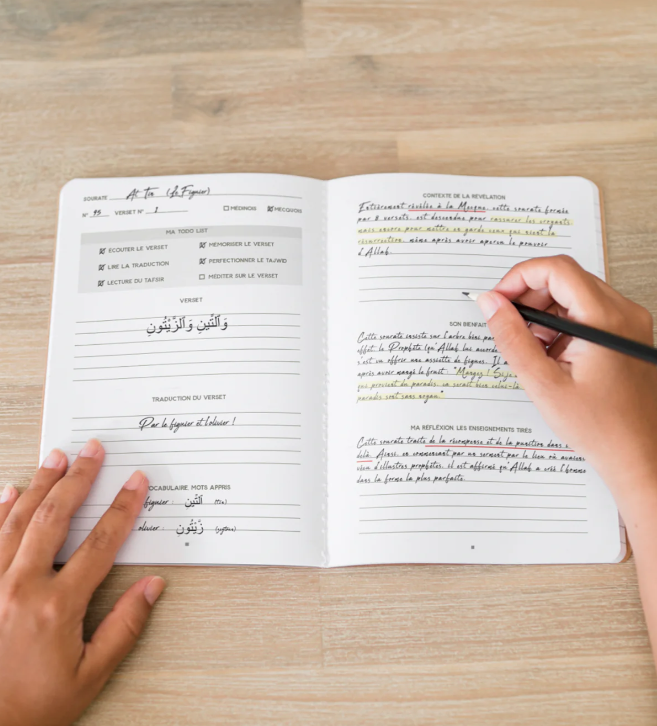 SOURATE At Tin (Le Figuier)
N° 95 VERSET N° 1 MÉDINOIS MECQUOIS
MA TODO LIST
ÉCOUTER LE VERSET MÉMORISER LE VERSET
LIRE LA TRADUCTION PERFECTIONNER LE TAJWID
LECTURE DU TAFSIR MÉDITER SUR LE VERSET
VERSET
وَٱلتِّينِ وَٱلزَّيْتُونِ
TRADUCTION DU VERSET
Par le figuier et l'olivier !
VOCABULAIRE, MOTS APPRIS
figuier : ٱلتِّينِ (tîn)
olivier : زَّيْتُونِ
CONTEXTE DE LA RÉVÉLATION
Entièrement révélée à la Mecque, cette sourate formée
par 8 versets, est descendue pour rassurer les croyants
mais encore pour mettre en garde ceux qui nient la
résurrection même après avoir aperçu le pouvoir
d'Allah.
SON BIENFAIT
Cette sourate insiste sur l'arbre béni par
effet, le Prophète (qu'Allah lui accorde
s'est vu offrir une assiette de figues. Il a
après avoir mangé le fruit : "Mangez ! Si je
que provient du paradis, ce serait bien celui-là
paradis sont sans noyau."
MA RÉFLEXION, LES ENSEIGNEMENTS TIRÉS
Cette sourate traite de la récompense et de la punition dans
delà. Ainsi, en commençant par un serment par le lieu où
d'illustres prophètes, il est affirmé qu'Allah a créé l'homme
dans la forme la plus parfaite.